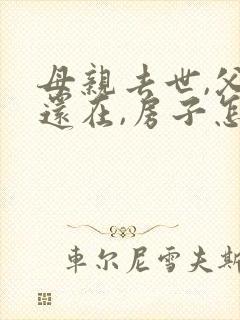 母親去世,父
還在,房子怎
車尔尼雪夫斯